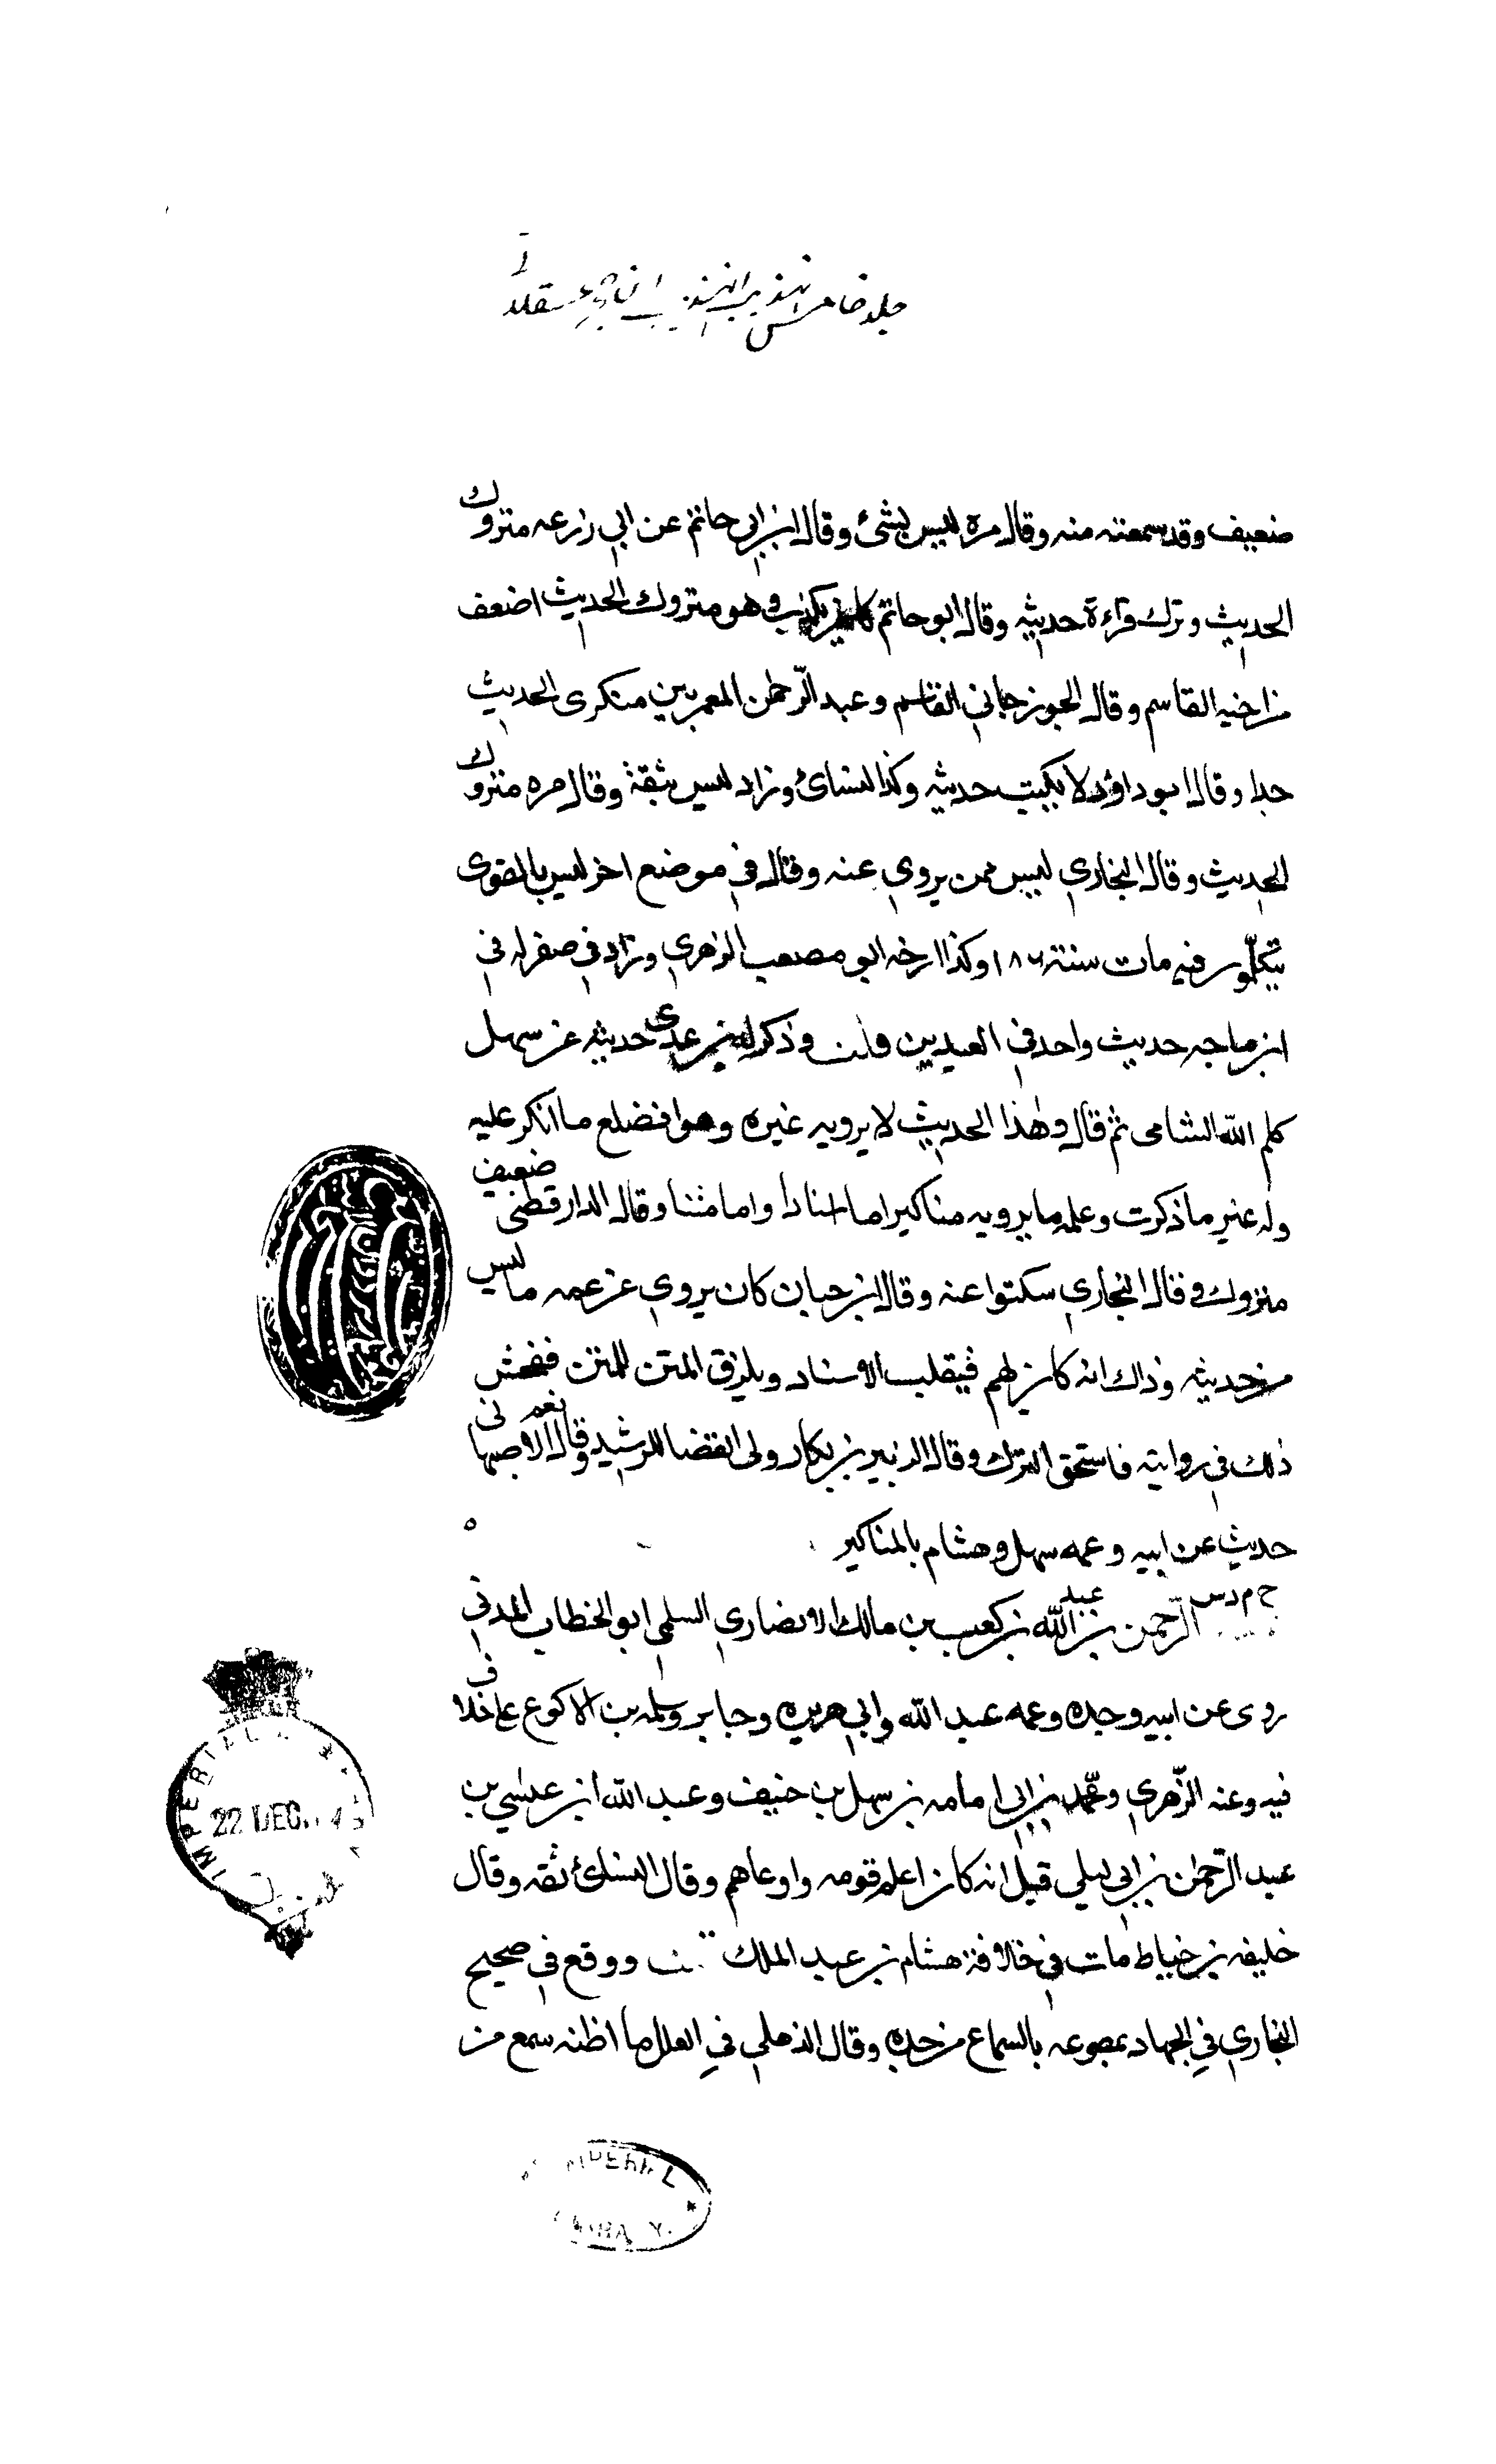 جلد خامس تهذيب التهذيب
ضعيف وقد سمعته منه وقال مره ليس بشئ وقال ابن ابي حاتم عن ابي زرعه متروك
الحديث وترك قراءة حديثه وقال ابو حاتم كان يكذب وهو متروك الحديث اضعف
من اخيه القاسم وقال الجوزجاني القاسم وعبد الرحمن العمريين منكرى الحديث
جدا وقال ابو داؤد لا يكتب حديثه وكذا النسائ وزاد ليس بثقة وقال مره متروك
الحديث وقال البخاري ليس ممن يروي عنه وقال في موضع اخر ليس بالقوى
يتكلمون فيه مات سنة ١٨٦ وكذا ارخه ابو مصعب الزهري وزاد في صفر له في
ابن ماجه حديث واحد في العيدين قلت وذكر له بن عدى حديثه عن سهل
كلم الله الشامى ثم قال وهذا الحديث لا يرويه غيره وهو افضلع ما انكر عليه
وله غير ما ذكرت وعلمه ما يرويه مناكير اما اسنادا واما متنا وقال الدارقطني ضعيف
متروك وقال البخاري سكتوا عنه وقال ابن حبان كان يروي عن عمه ما ليس
من حديثه وذاك انه كان يهم فيقلب الاسناد ويلزق المتن للمتن ففحش
ذلك في روايته فاستحق الترك وقال الزبير بن بكار ولى القضا للرشيد وقال ابو نعيم الاصبهاني
حديث عن ابيه وعمه سهل وهشام بالمناكير ه
خ م د س الرحمن بن عبد الله بن كعب بن مالك الانصاري السلمى ابو الخطاب المدني
روى عن ابيه وجده وعمه عبد الله وابي هريره وجابر وسلمه بن الاكوع على خلاف
فيه وعنه الزهري ومحمد بن ابي امامه بن سهل بن حنيف وعبد الله ابن عيسي بن
عبد الرحمن بن ابي ليلي قيل انه كان اعلم قومه واوعاهم وقال النسائ ثقه وقال
خليفه بن خياط مات في خلافة هشام بن عبد الملك قلت ووقع في صحيح
البخاري في الجهاد بصوعه بالسماع من جده وقال الذهلي في العلل ما اظنه سمع من
IMPERIAL
22 DEC.